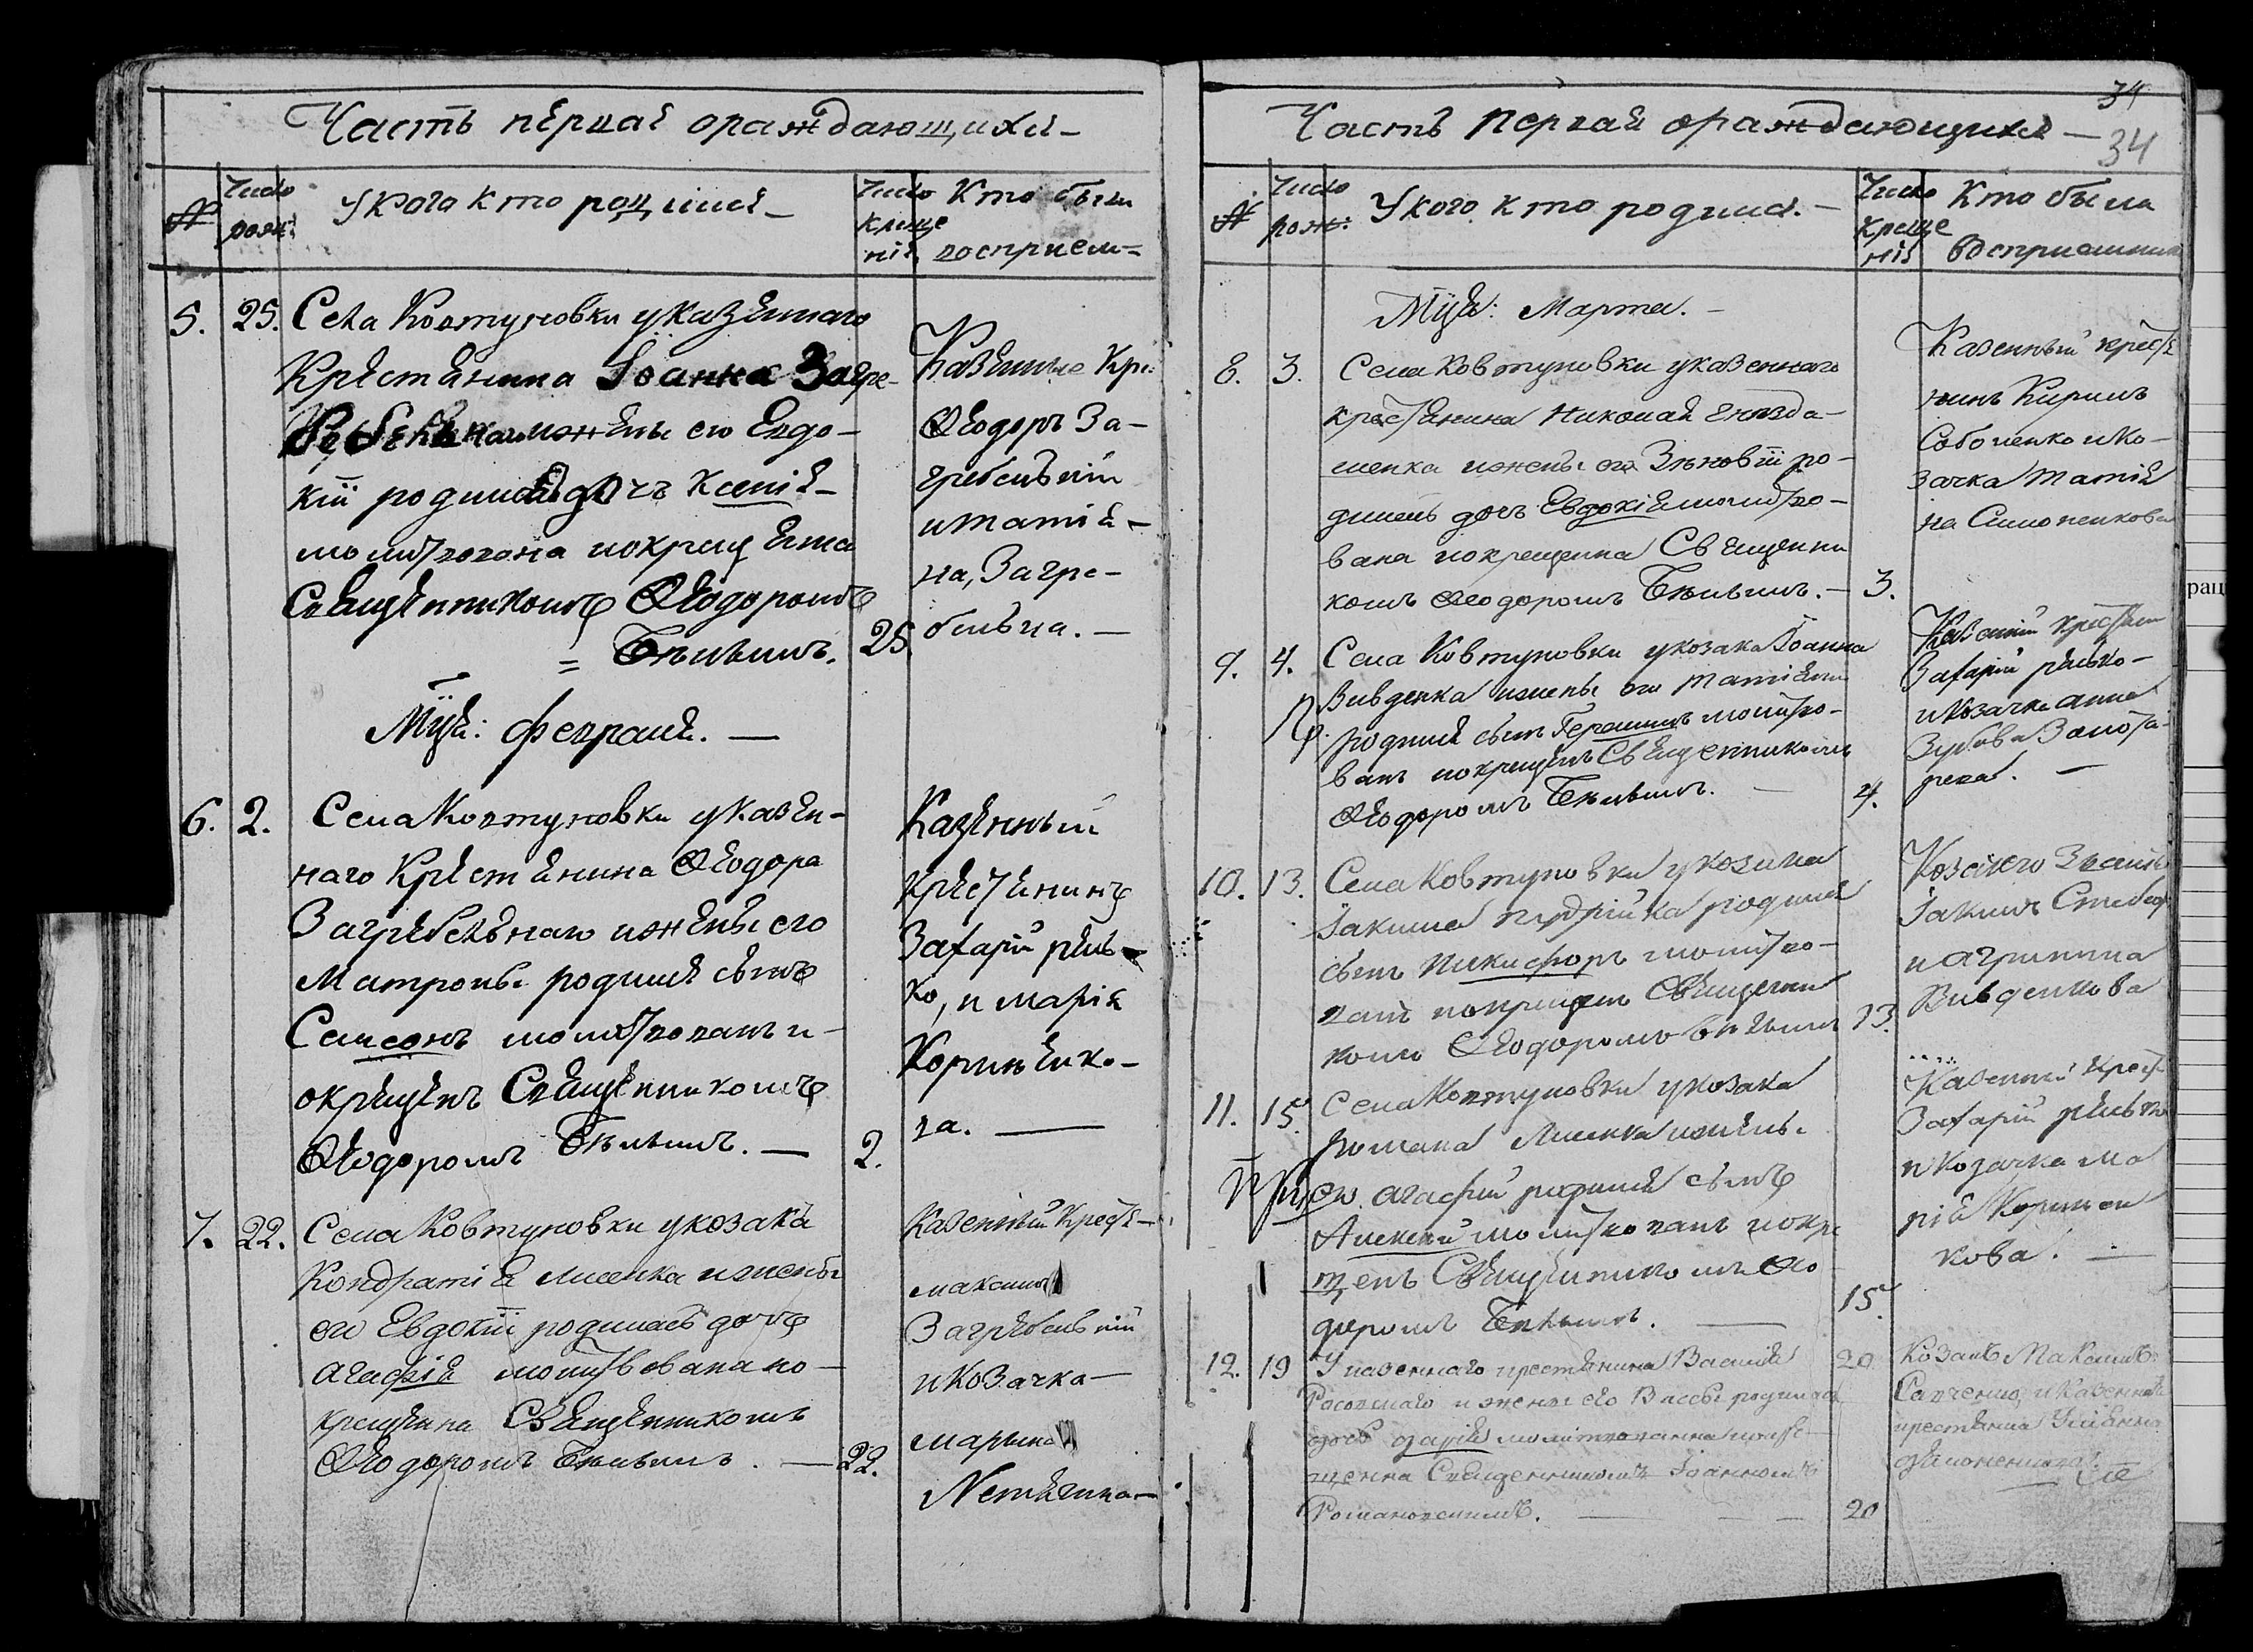 Часть первая ораждающихся
№
Число рожд:
У кого кто родился
Число креще нія
Кто были восприем=
5. 25. Села Ковтуновки у казенного
Крестянина Іоанна Загре-
бельнаго и жены его Евдо-
кіи родилась дочь Ксенія
молитвована и окрещена
Священникомъ Феодоромъ
= Бѣлымъ. 25
Казенные Кре:
Феодоръ За-
гребельній
и татія-
на, Загре-
бельна. —
Мцъ: февраля. —
6. 2. Села Ковтуновки у казен-
наго Крестянина Феодора
Загребельнаго и жены его
Матроны родился сынъ
Самсонъ молитвованъ и
окрещенъ Священникомъ
Феодоромъ Бѣлымъ. — 2.
Казенный
крестянинъ
Захарій рѣпь
ко, и марія
Коринѣнко-
ва. —
7. 22. Села Ковтуновки у козака
Кондратія лисенка и жены
его Евдокіи родилась дочь
агафія молитвована ио-
крещена Священникомъ
Феодоромъ Бѣлымъ. — 22.
Казенный Крест-
максимъ
Загребельній
и козачка
марына
34
34
Часть первая ораждающихся —
№
Число рож:
У кого кто родился. —
Число креще нія
Кто были восприемники
Мцъ: Марта. —
8. 3. Села Ковтуновки у казенного
крестянина Николая гнезда-
шенка и жены его Зѣновіи ро-
дилась дочь Евдокія молитво-
вана и окрещенна Священни
комъ Феодоромъ Бѣлымъ. — 3.
Казенный крестя
нинъ Кирилъ
Соболенко и ко-
зачка татія
на Симоненкова
9. 4. Села Ковтуновки у козака Іоанна
Вивденка и жены его татіяны
родился сынъ Герасимъ молитво-
ванъ и окрещенъ Священникомъ
Феодоромъ Бѣлымъ. — 4.
Казенній крестян
Захарій рѣпько-
и козачка анна
10. 13. Села Ковтуновки у козака
Іакима родился
сынъ Никифоръ молитво-
ванъ и окрещенъ Священни
комъ Феодоромъ Бѣлымъ 13.
Козачего Званія
Іакимъ
и агрипина
Вивденкова
11. 15. Села Ковтуновки у козака
Романа Лисенка и жены
его агафіи родился сынъ
Алексій молитвованъ и окре
щенъ Священникомъ Фео
доромъ Бѣлымъ. — 15.
Казенный Крест
Захарій рѣпько
и козачка ма
рія Коринен
кова. —
12. 19 У казенного крестянина Василія
и жены его Вассы родилась
дочь молитвованна и окре-
щенна Священникомъ Іоанномъ
Романовскимъ. — 20
20 Козакъ Максимъ
Савченко, и казенна
крестянка Уліанна